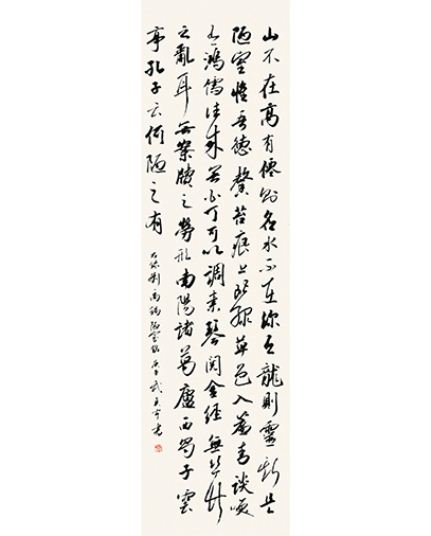 山不在高有僊則名水不在深有龍則靈斯是
陋室惟吾德馨苔痕上階綠草色入簾青談笑
有鴻儒往來無白丁可以調素琴閱金經無絲竹
之亂耳無案牘之勞形南陽諸葛廬西蜀子雲
亭孔子云何陋之有
右錄劉禹錫陋室銘